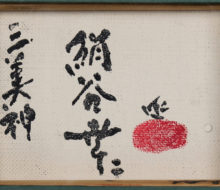 三美神
絹谷幸二